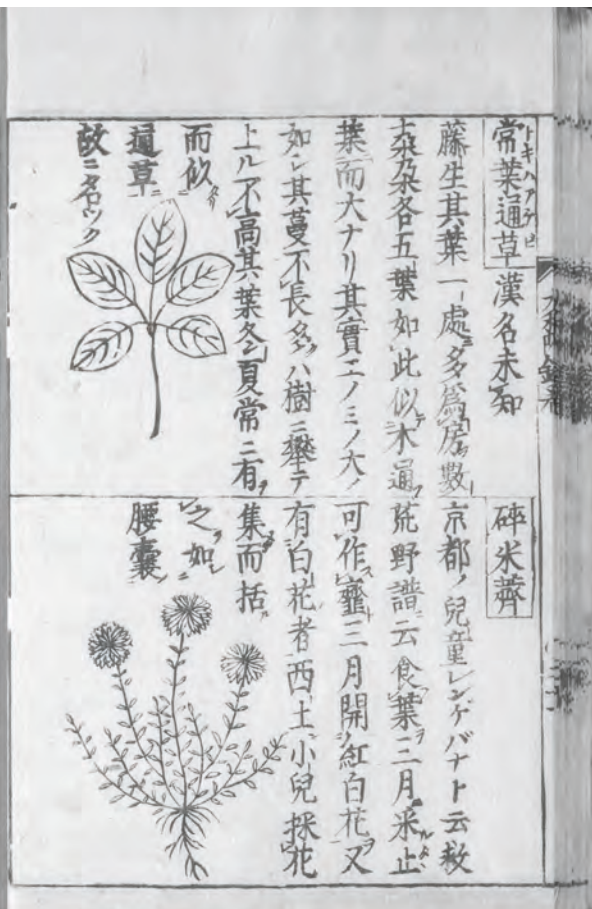 トキハアケビ
常葉通草 漢名未知
藤生其葉一處多為房數
朶朶各五葉如此似木通
葉而大ナリ其實エノミノ大ノ
如シ其蔓不長多ハ樹ニ攀テ
上ル不高其葉冬夏常ニ有
而似
通草
故ニ名ツク
碎米薺
京都ノ兒童レンゲバナト云救
荒野譜云食葉三月采止
可作虀三月開紅白花又
有白花者西土小兒採花
集而括
之如
腰囊